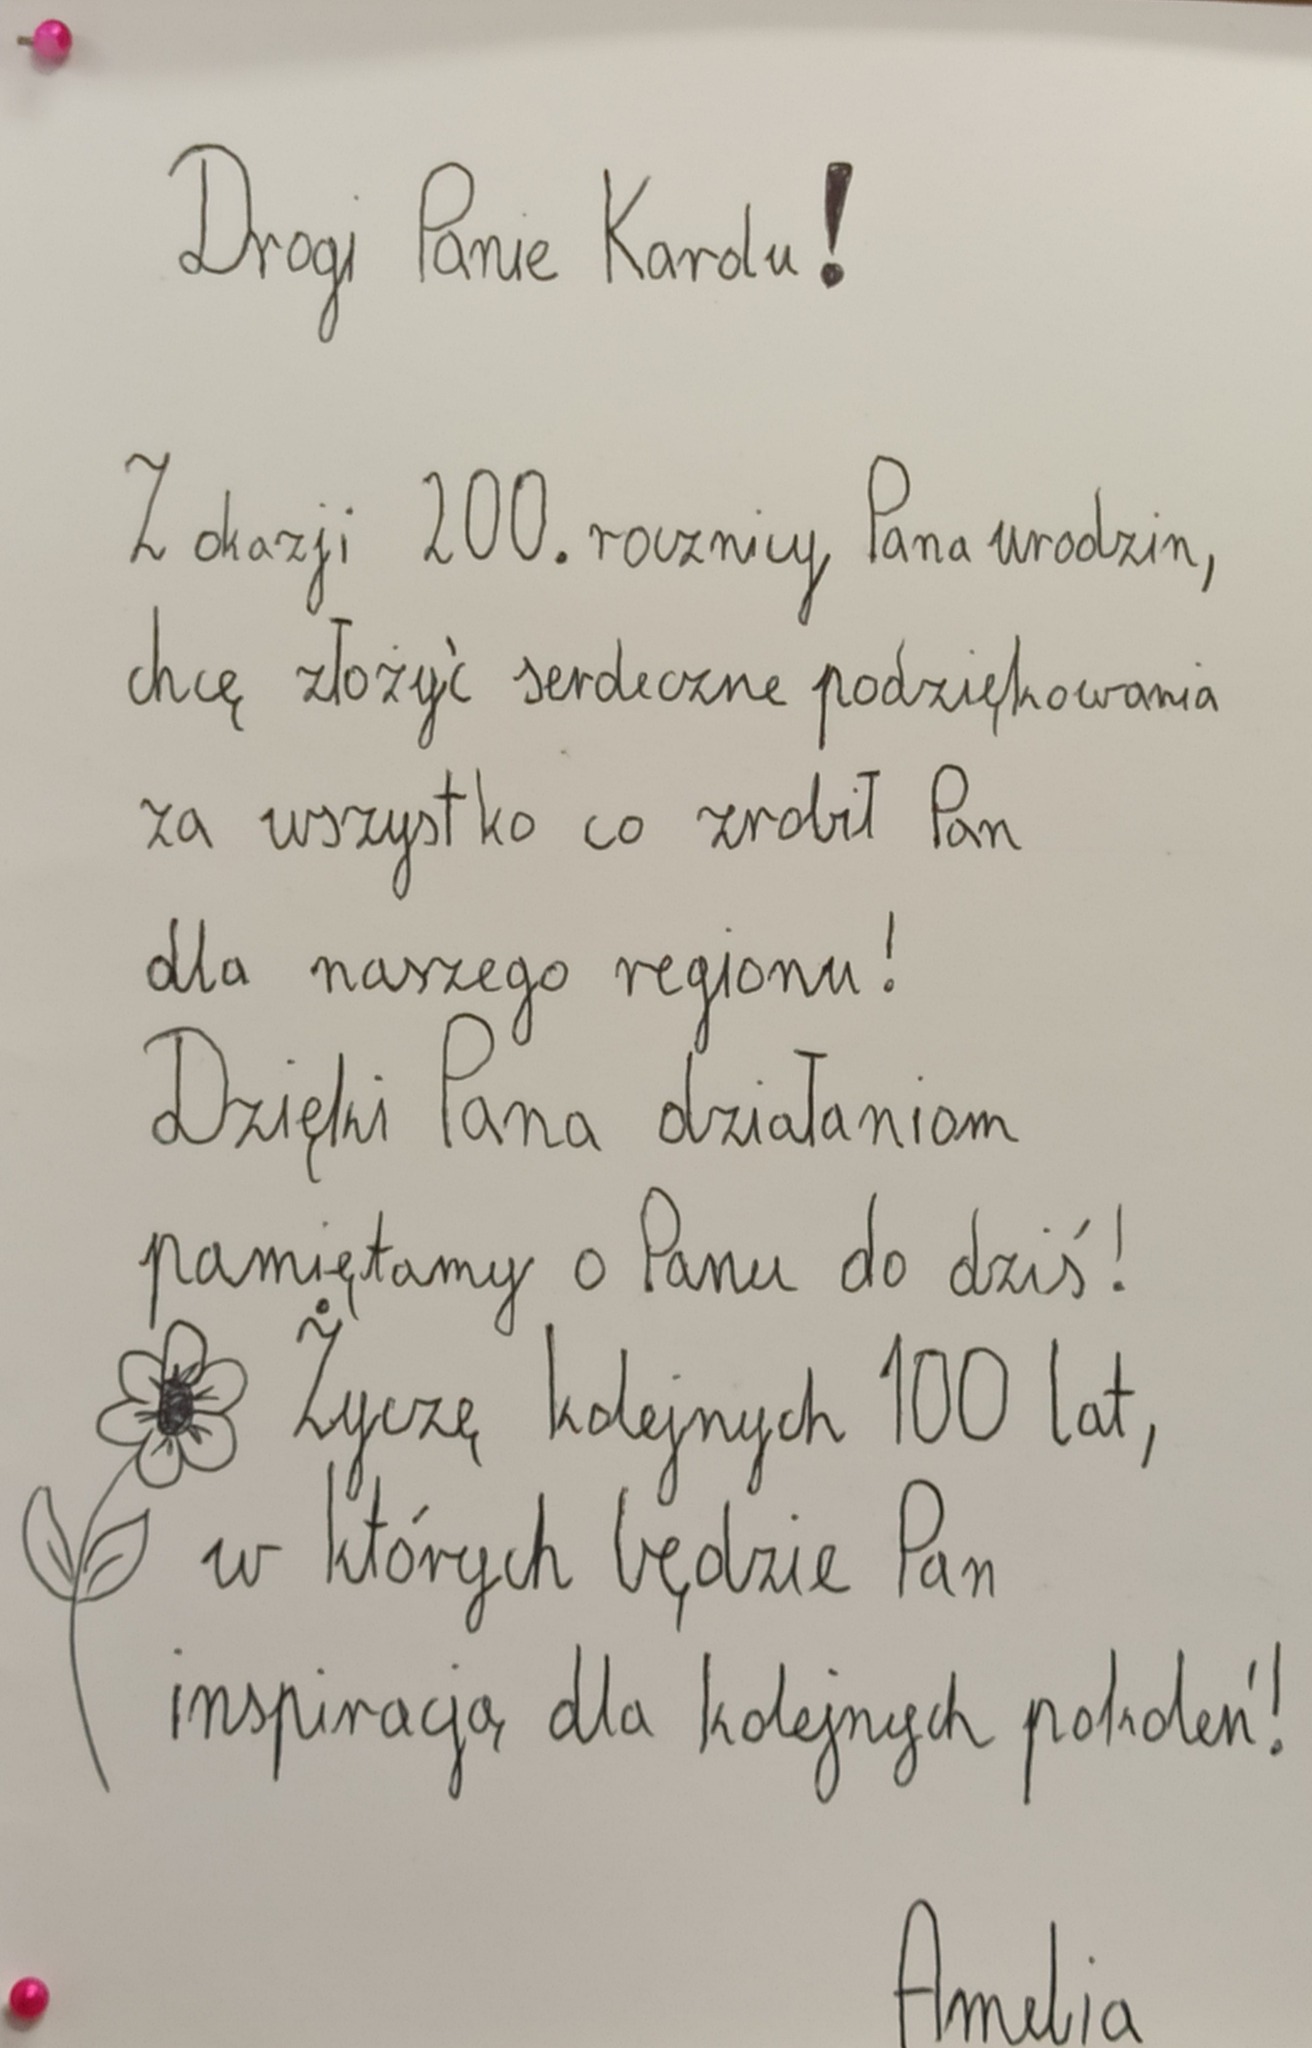 Drogi Panie Karolu!
Z okazji 200. rocznicy Pana urodzin,
chcę złożyć serdeczne podziękowania
za wszystko co zrobił Pan
dla naszego regionu!
Dzięki Pana działaniom
pamiętamy o Panu do dziś!
Życzę kolejnych 100 lat,
w których będzie Pan
inspiracją dla kolejnych pokoleń!
Amelia